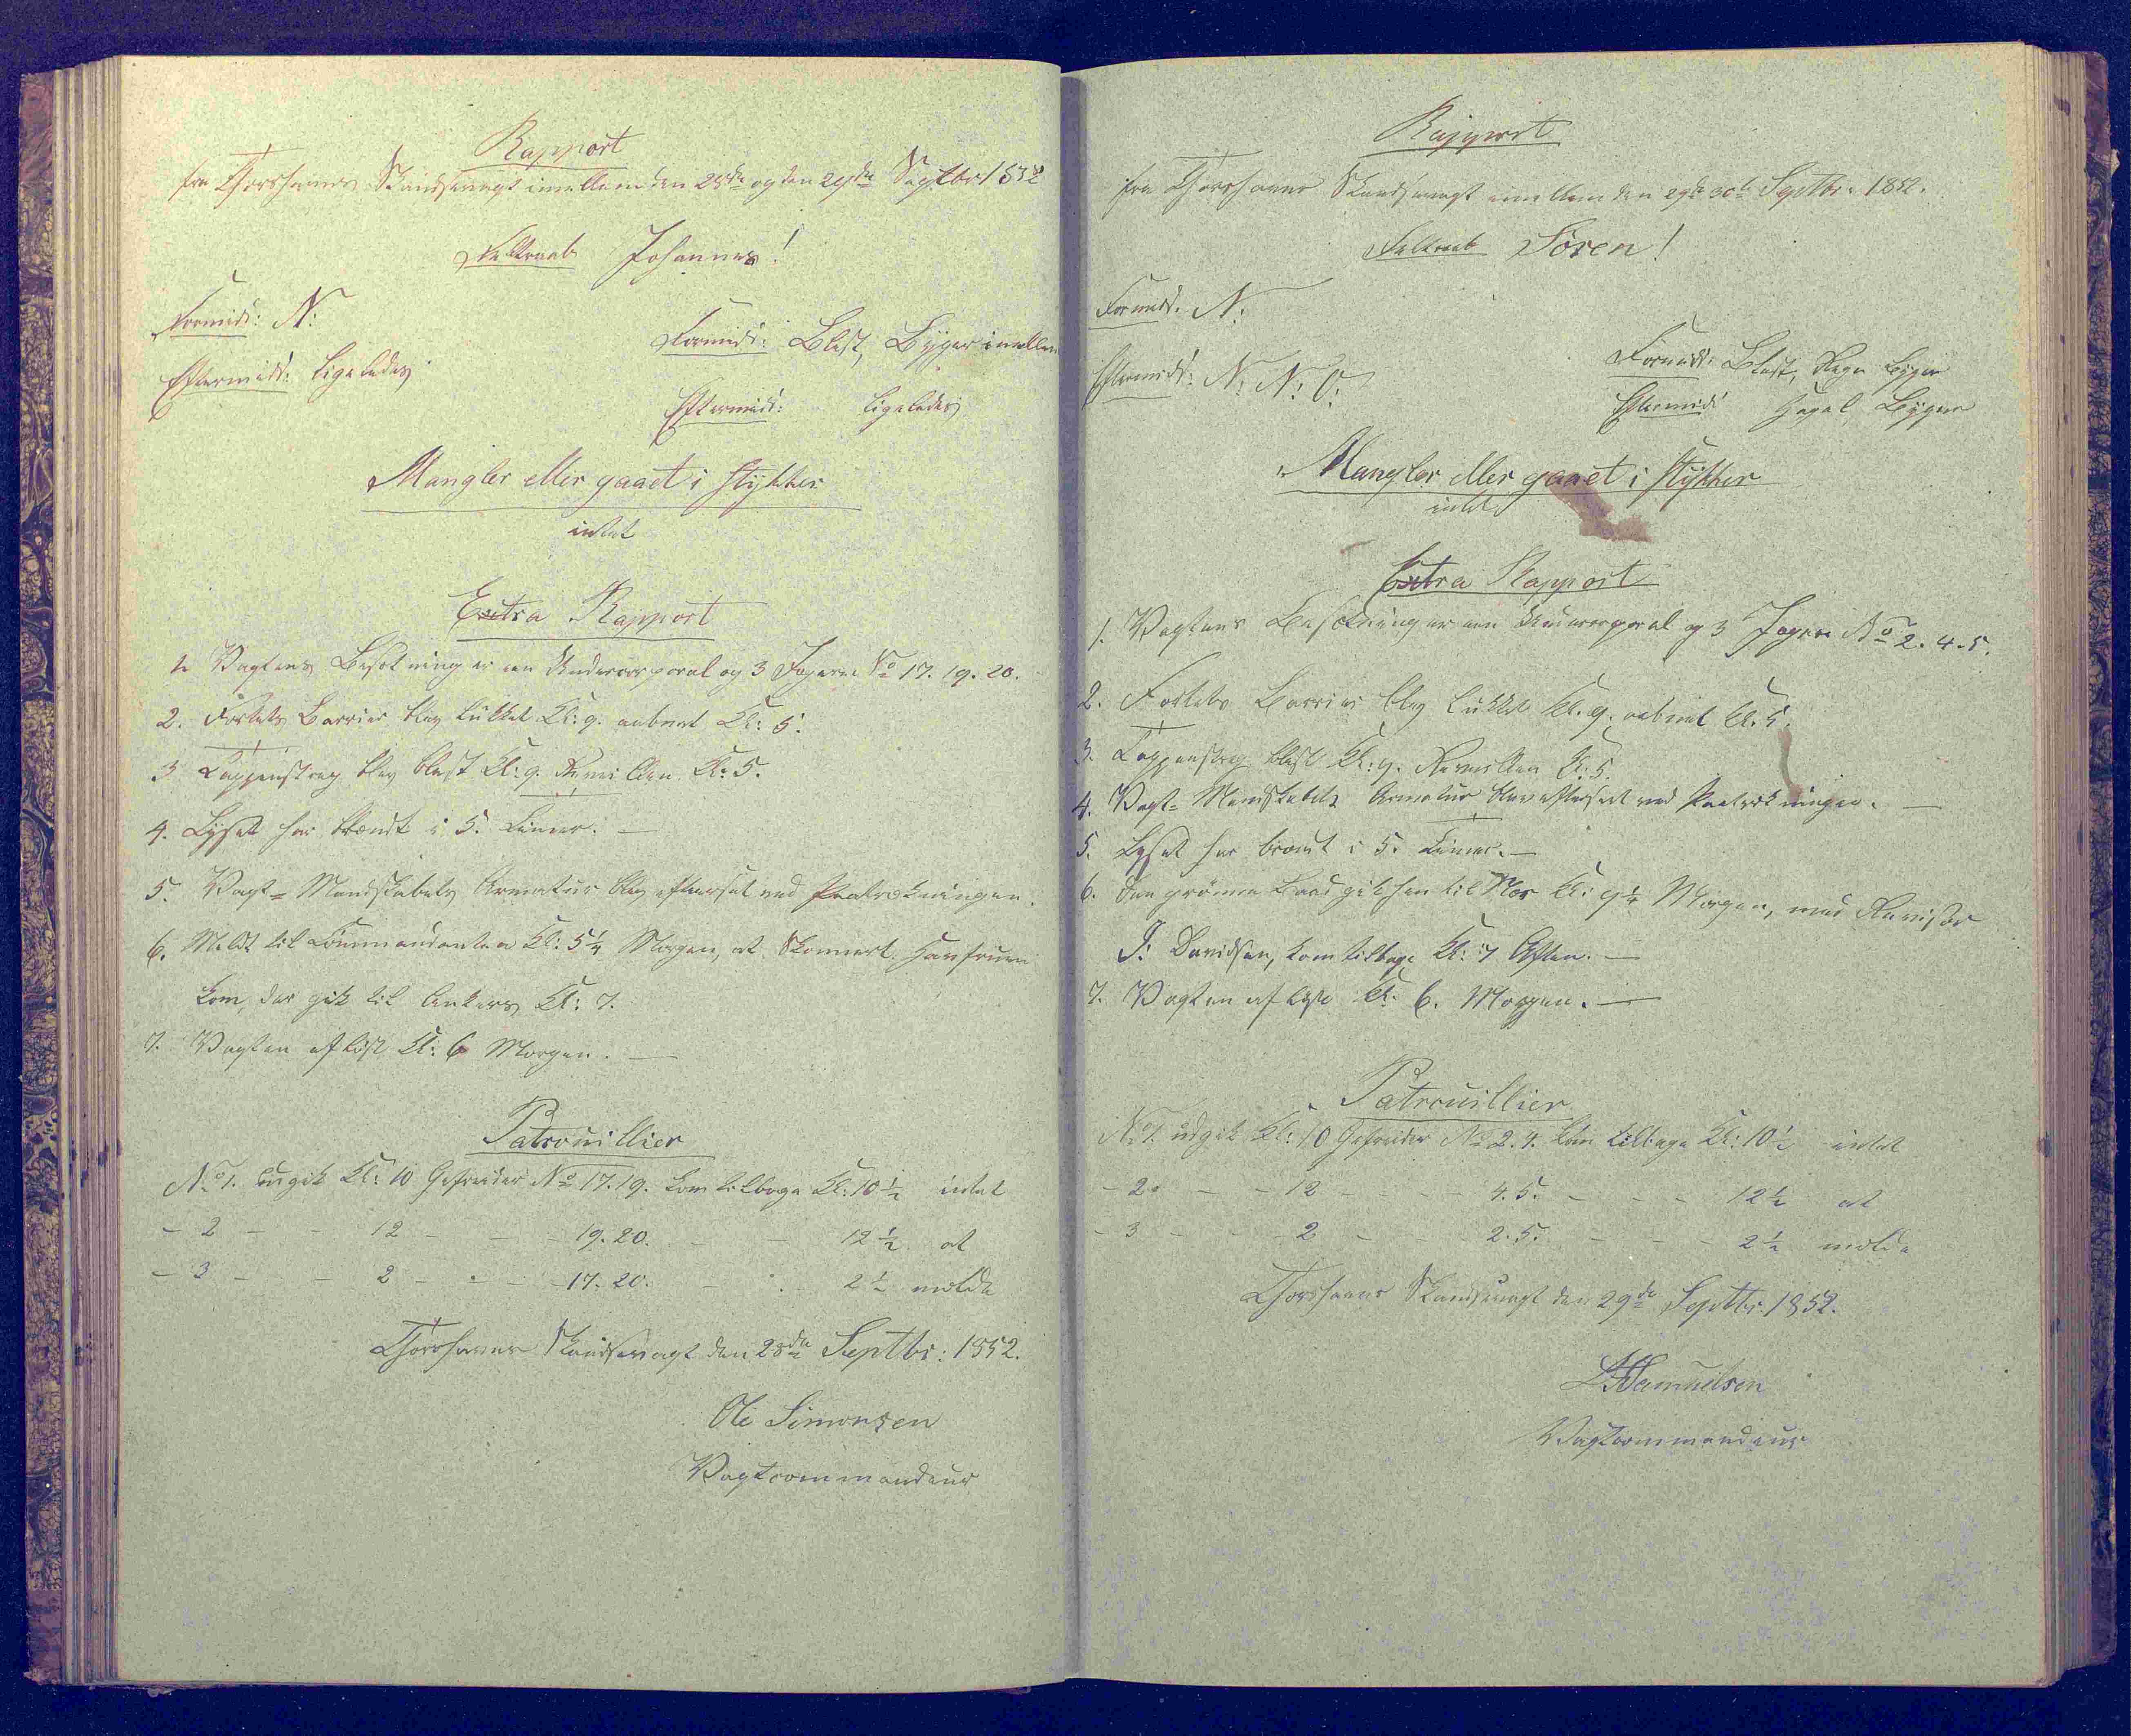 Rapport
fra Thorshavns Skandsevagt imellem den 28de og den 29de Septbr 1852
Feltraab Johannes!
Formidd: N:
Formidd: Blæst, Byger imellem
Eftermidd: ligeledes
Eftermidd: ligeledes
Mangler eller gaaet i stykker
intet
Extra Rapport
1. Vagtens Besætning er een Undercorporal og 3 Jægere No 17. 19. 20.
2. Fortets Barrier blev lukket Kl: 9. aabnet Kl: 5.
3 Tappenstreg blev blæst Kl: 9. Reveillen Kl: 5.
4. Lyset har brændt i 5. Timer. —
5. Vagt-Mandskabets Armatur blev efterset ved Paatrækningen.
6. Meldt til Commandanten Kl: 5¼ Morgen, at Skonnert Havfruen
kom, der gik til Ankers Kl: 7.
7. Vagten afløst Kl: 6 Morgen. —
Patrouillier
No 1. udgik Kl: 10 Gefreider No 17. 19. kom tilbage Kl: 10½ intet
– 2 – – 12 – – – 19. 20. – – 12½ at
– 3 – – 2 – – – 17. 20. – – 2½ melde
Thorshavns Skandsevagt den 28de Septbr: 1852.
Ole Simonsen
Vagtcommandeur
Rapport
fra Thorshavns Skandsevagt imellem den 29de 30te Septbr: 1852.
Feltraab Sören!
Formidd. N:
Formidd: Blæst, Regn Byger
Eftermidd: N: N: O:
Eftermidd Hagel Byger
Mangler eller gaaet i stykker
intet
Extra Rapport
1. Vagtens Besætning er een Undercorporal og 3 Jægere No 2. 4. 5.
2. Fortets Barrier blev lukket Kl. 9. aabnet Kl. 5.
3. Tappenstreg blæst Kl: 9. Reveillen Kl: 5.
4. Vagt-Mandskabets Armatur blev efterset ved Paatrækningen. —
5. Lyset har brændt i 5. Timer. —
6. Den grönne Baad gik hen til Næs Kl: 9¼ Morgen, med Revisor
J: Davidsen, kom tilbage Kl: 7 Aften. —
7. Vagten afløst Kl. 6. Morgen. —
Patrouillier
No 1. udgik Kl: 10 Gefreider No 2. 4. kom tilbage Kl: 10½ intet
– 2. – – 12 – – – 4. 5. – – – 12½ at
– 3 – – 2 – – 2. 5. – – – 2½ melde
Thorshavns Skandsevagt den 29de Septbr: 1852.
Samuelsen
Vagtcommandeur